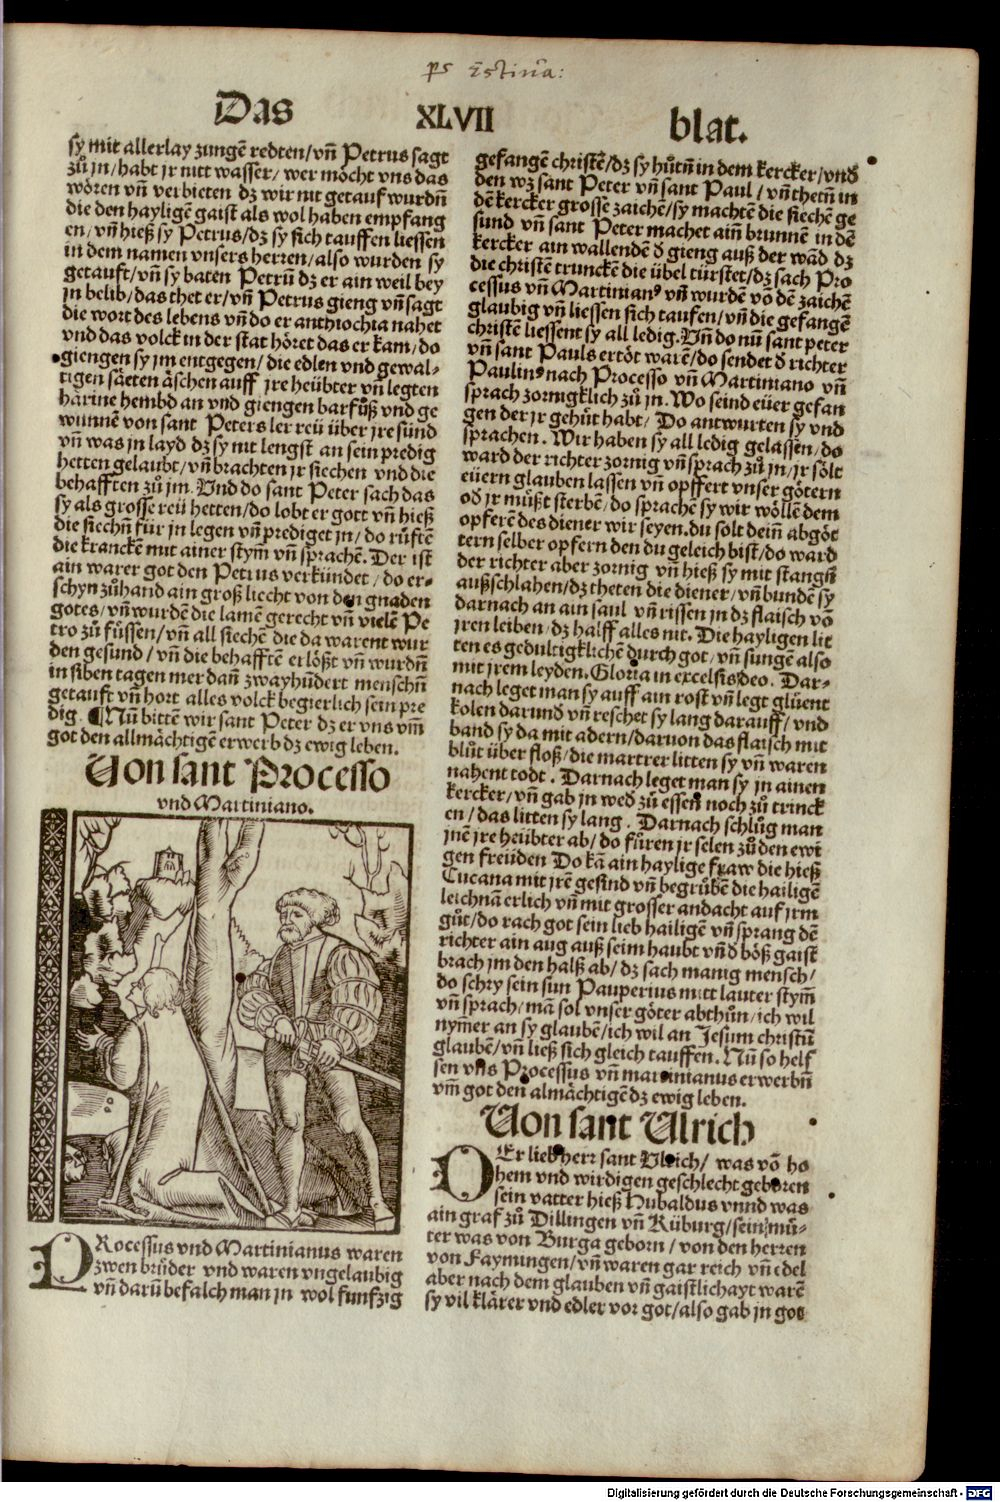 Das XLVII blat.
sy mit allerlay zungẽ redten/vñ Petrus sagt
zů jn/habt jr nitt wasser/wer möcht vns das
wören vñ verbieten dz wir nit getauf wurdñ
die den hayligẽ gaist als wol haben empfang
en/vñ hieß sy Petrus/dz sy sich tauffen liessen
in dem namen vnsers herren/also wurden sy
getauft/vñ sy baten Petrũ dz er ain weil bey
jn belib/das thet er/vñ Petrus gieng vñ sagt
die wort des lebens vñ do er anthiochia nahet
vnd das volck in der stat höret das er kam/do
giengen sy jm entgegen/die edlen vnd gewal-
tigen säeten äschen auff jre heübter vñ legten
härine hembd an vnd giengen barfůß vnd ge
wunnẽ von sant Peters ler reü über jre sünd
vñ was in layd dz sy nit lengst an sein predig
hetten gelaubt/vñ brachten jr siechen vnd die
behafften zů jm. Vnd do sant Peter sach das
sy als grosse reü hetten/do lobt er gott vñ hieß
die siechñ für jn legen vñ prediget in/do růftẽ
die kranckẽ mit ainer stym̃ vñ sprachẽ. Der ist
ain warer got den Petrus verkündet/do er-
schyn zůhand ain groß liecht von den gnaden
gotes/vñ wurdẽ die lamẽ gerecht vñ vielẽ Pe
tro zů fůssen/vñ all siechẽ die da warent wur
den gesund/vñ die behafftẽ erlößt vñ wurdñ
in siben tagen mer dañ zwayhũdert menschñ
getauft vñ hort alles volck begierlich sein pre
dig. ¶Nũ bittẽ wir sant Peter dz er vns vm̃
got den allmächtigẽ erwerb dz ewig leben.
Von sant Processo
vnd Martiniano.
PRocessus vnd Martinianus waren
zwen brůder vnd waren vngelaubig
vñ darũ befalch man in wol funfzig
gefangẽ christẽ/dz sy hůtñ in dem kercker/vnd
den wz sant Peter vñ sant Paul/vñ thetñ in
dẽ kercker grosse zaichẽ/sy machtẽ die siechẽ ge
sund vñ sant Peter machet ainñ brunnẽ in dẽ
kercker ain wallendẽ d gieng auß der wãd dz
die christẽ trunckẽ die übel türstet/dz sach Pro
cessus vñ Martinianꝰ vñ wurdẽ võ dẽ zaichẽ
glaubig vñ liessen sich taufen/vñ die gefangẽ
christẽ liessent sy all ledig. Vñ do nũ sant peter
vñ sant Pauls ertöt warẽ/do sendet d richter
Paulinꝰ nach Processo vñ Martiniano vñ
sprach zornigklich zů jn. Wo seind eüer gefan
gen der jr gehüt habt/ Do antwurten sy vnd
sprachen. Wir haben sy all ledig gelassen/do
ward der richter zornig vñ sprach zů jn/jr sölt
eüern glauben lassen vñ opffert vnser götern
od jr můßt sterbẽ/do sprachẽ sy wir wöllẽ dem
opferẽ des diener wir seyen. du solt deiñ abgöt
tern selber opfern den du geleich bist/do ward
der richter aber zornig vñ hieß sy mit stangñ
außschlahen/dz theten die diener/vñ bundẽ sy
darnach an ain saul vñ rissen in dz flaisch võ
jren leiben/dz halff alles nit. Die hayligen lit
ten es gedultigklichẽ durch got/vñ sungẽ also
mit jrem leyden. Gloria in excelsis deo. Dar-
nach leget man sy auff ain rost vñ legt glüent
kolen darund vñ reschet sy lang darauff/vnd
band sy da mit adern/daruon das flaisch mit
blůt über floß/die martrer litten sy vñ waren
nahent todt. Darnach leget man sy in ainen
kercker/vñ gab jn wed zů essen noch zů trinck
en/das litten sy lang. Darnach schlůg man
jnẽ jre heübter ab/do fůren jr selen zů den ewi
gen freüden Do kã ain haylige fraw die hieß
Lucana mit jrẽ gesind vñ begrůbẽ die hailigẽ
leichnã erlich vñ mit grosser andacht auf jrm
gůt/do rach got sein lieb hailigẽ vñ sprang dẽ
richter ain aug auß seim haubt vñd böß gaist
brach jm den halß ab/dz sach manig mensch/
do schry sein sun Pauperius mitt lauter stym̃
vñ sprach/mã sol vnser göter abthůn/ich wil
nym̃er an sy glaubẽ/ich wil an Jesum christũ
glaubẽ/vñ ließ sich gleich tauffen. Nũ so helf
sen vns Processus vñ martinianus erwerbñ
vm̃ got den almächtigẽ dz ewig leben.
Von sant Ulrich
DEr lieb herr sant Ulrich/ was võ ho
hem vnd wirdigen geschlecht geboren
sein vatter hieß Hubaldus vnnd was
ain graf zů Dillingen vñ Küburg/sein můͦ-
ter was von Burga geborn/von den herren
von Faymingen/vñ waren gar reich vñ edel
aber nach dem glauben vñ gaistlichayt warẽ
sy vil klärer vnd edler vor got/also gab jn got
Digitalisierung gefördert durch die Deutsche Forschungsgemeinschaft - DFG